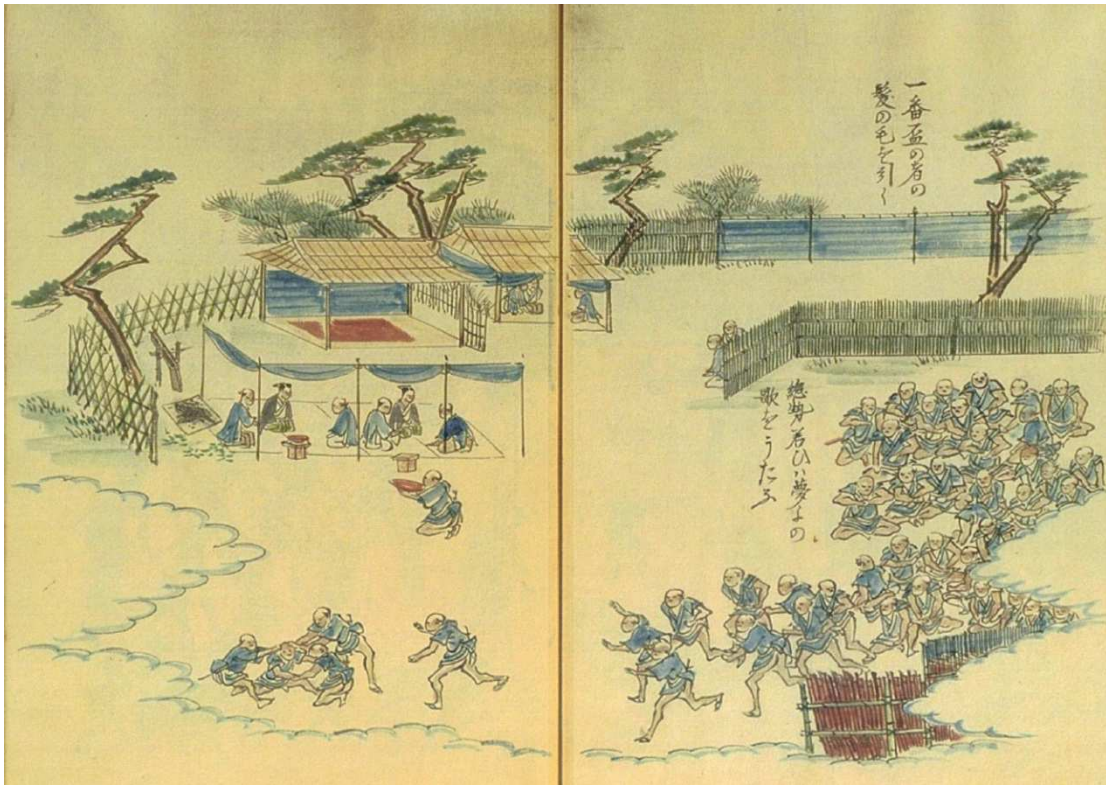 一番盃の者の
髪の毛を引く
惣勢君ひい夢子の
歌をうたふ